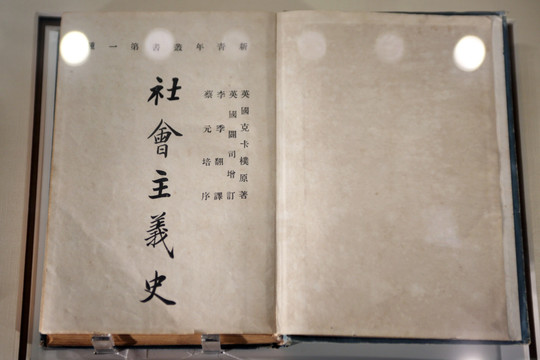 新青年叢書第一種
英國克卡樸原著
英國闢司增訂
李季翻譯
蔡元培序
社會主義史